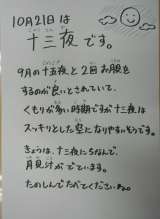 10月21日は
十三夜です。
9月の十五夜と2回お月見
するのが良いとされていて、
くもりが多い時期ですが十三夜は
スッキリとした空になりやすいそうです。
きょうは、十三夜にちなんで、
月見汁がでています。
たのしんでたべてくださいね。